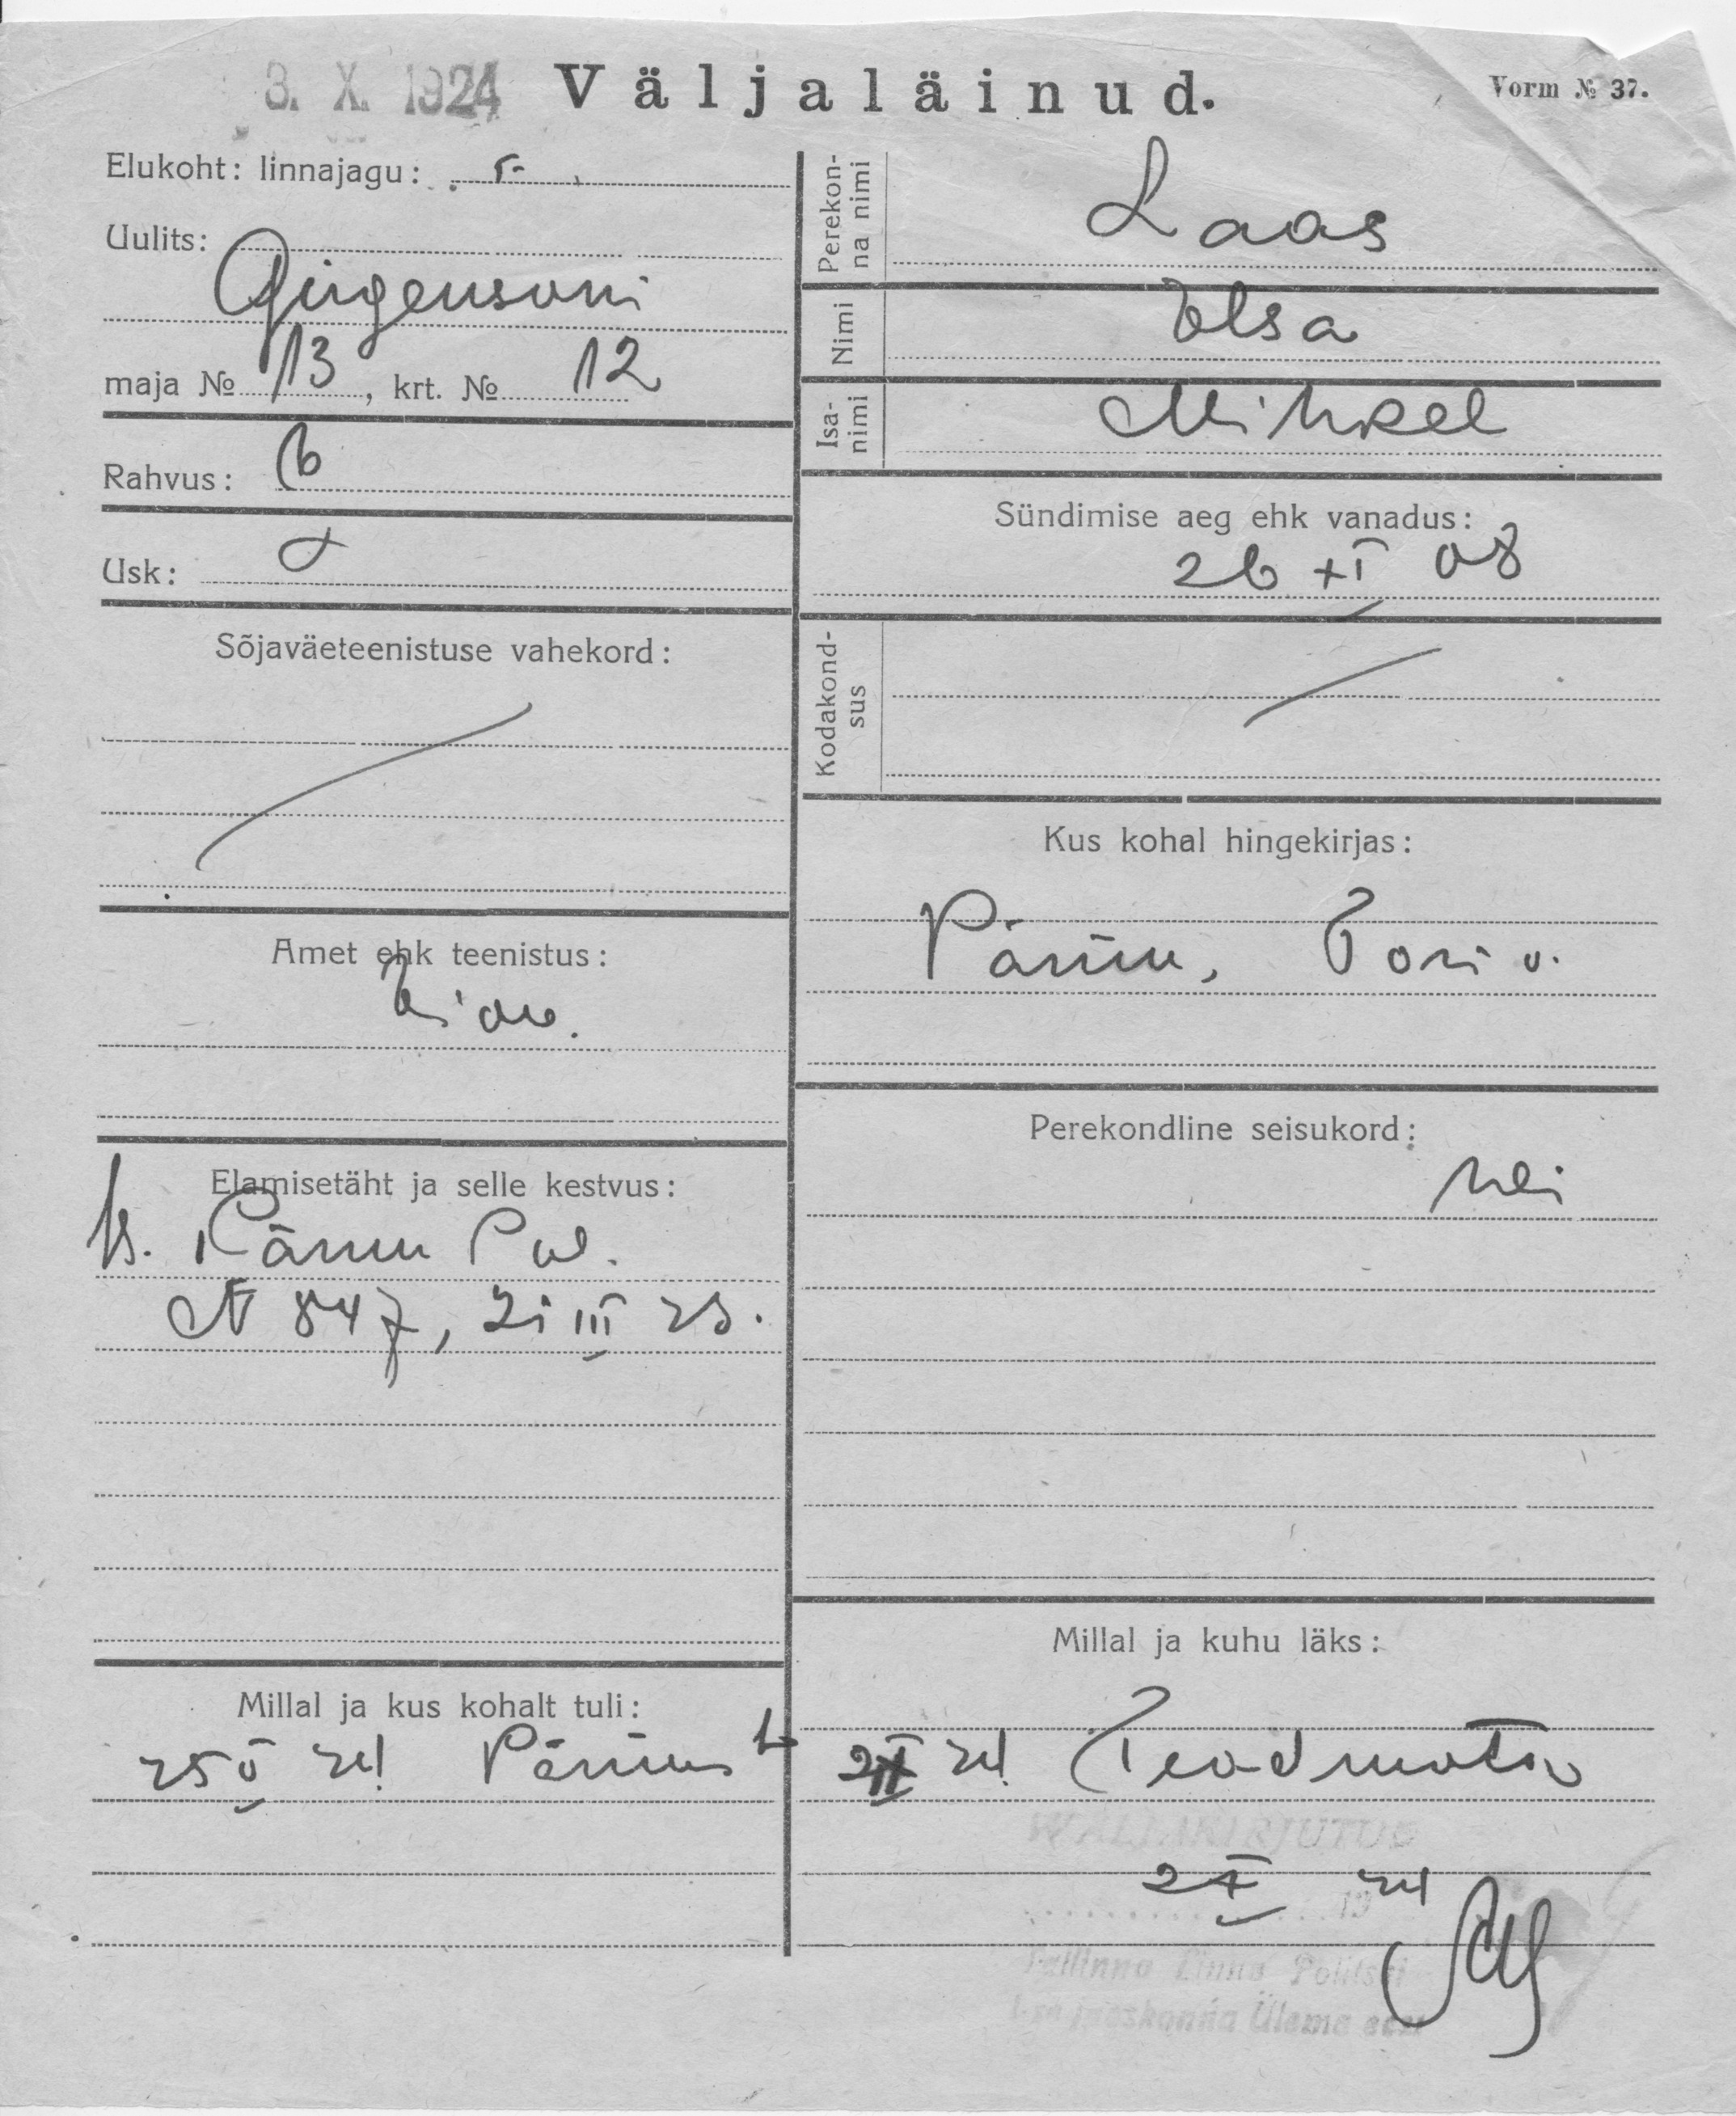 3. X. 1924 Väljaläinud. Vorm № 37.
Elukoht: linnajagu: 5
Uulits:
Girgensoni
maja № 13, krt. № 12
Rahvus: e
Usk:
Sõjaväeteenistuse vahekord:
Amet ehk teenistus:
Elamisetäht ja selle kestvus:
Is. Pärnu Pol.
N 847, 21 III 23.
Millal ja kus kohalt tuli:
25 V 24 Pärnus t
Perekonna nimi Laas
Nimi Elsa
Isanimi Mihkel
Sündimise aeg ehk vanadus:
26 XI 08
Kodakondsus
Kus kohal hingekirjas:
Pärnu, Tori v.
Perekondline seisukord:
Millal ja kuhu läks:
2 X 24 Teadmata
WÄLJAKIRJUTUS
2 X 24
19
Tallinna Linna Politsei
jaoskonna Ülema